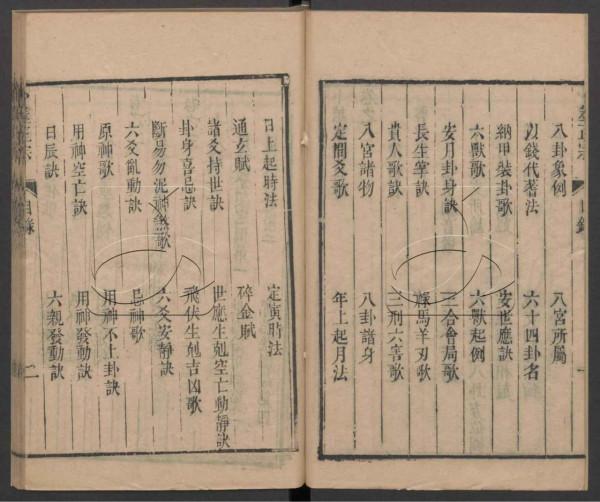 八卦象例 八宮所屬
以錢代蓍法 六十四卦名
納甲裝卦歌 安世應訣
六獸歌 六獸起例
安月卦身訣 三合會局歌
長生掌訣 祿馬羊刃歌
貴人歌訣 三刑六害歌
八宮諸物 八卦諸身
定間爻歌 年上起月法
日上起時法 定寅時法
通玄賦 碎金賦
諸爻持世訣 世應生剋空亡動靜訣
卦身喜忌訣 飛伏生剋吉凶歌
斷易勿泥神煞歌 六爻安靜訣
六爻亂動訣 忌神歌
原神歌 用神不上卦訣
用神空亡訣 用神發動訣
日辰訣 六親發動訣
目錄 二